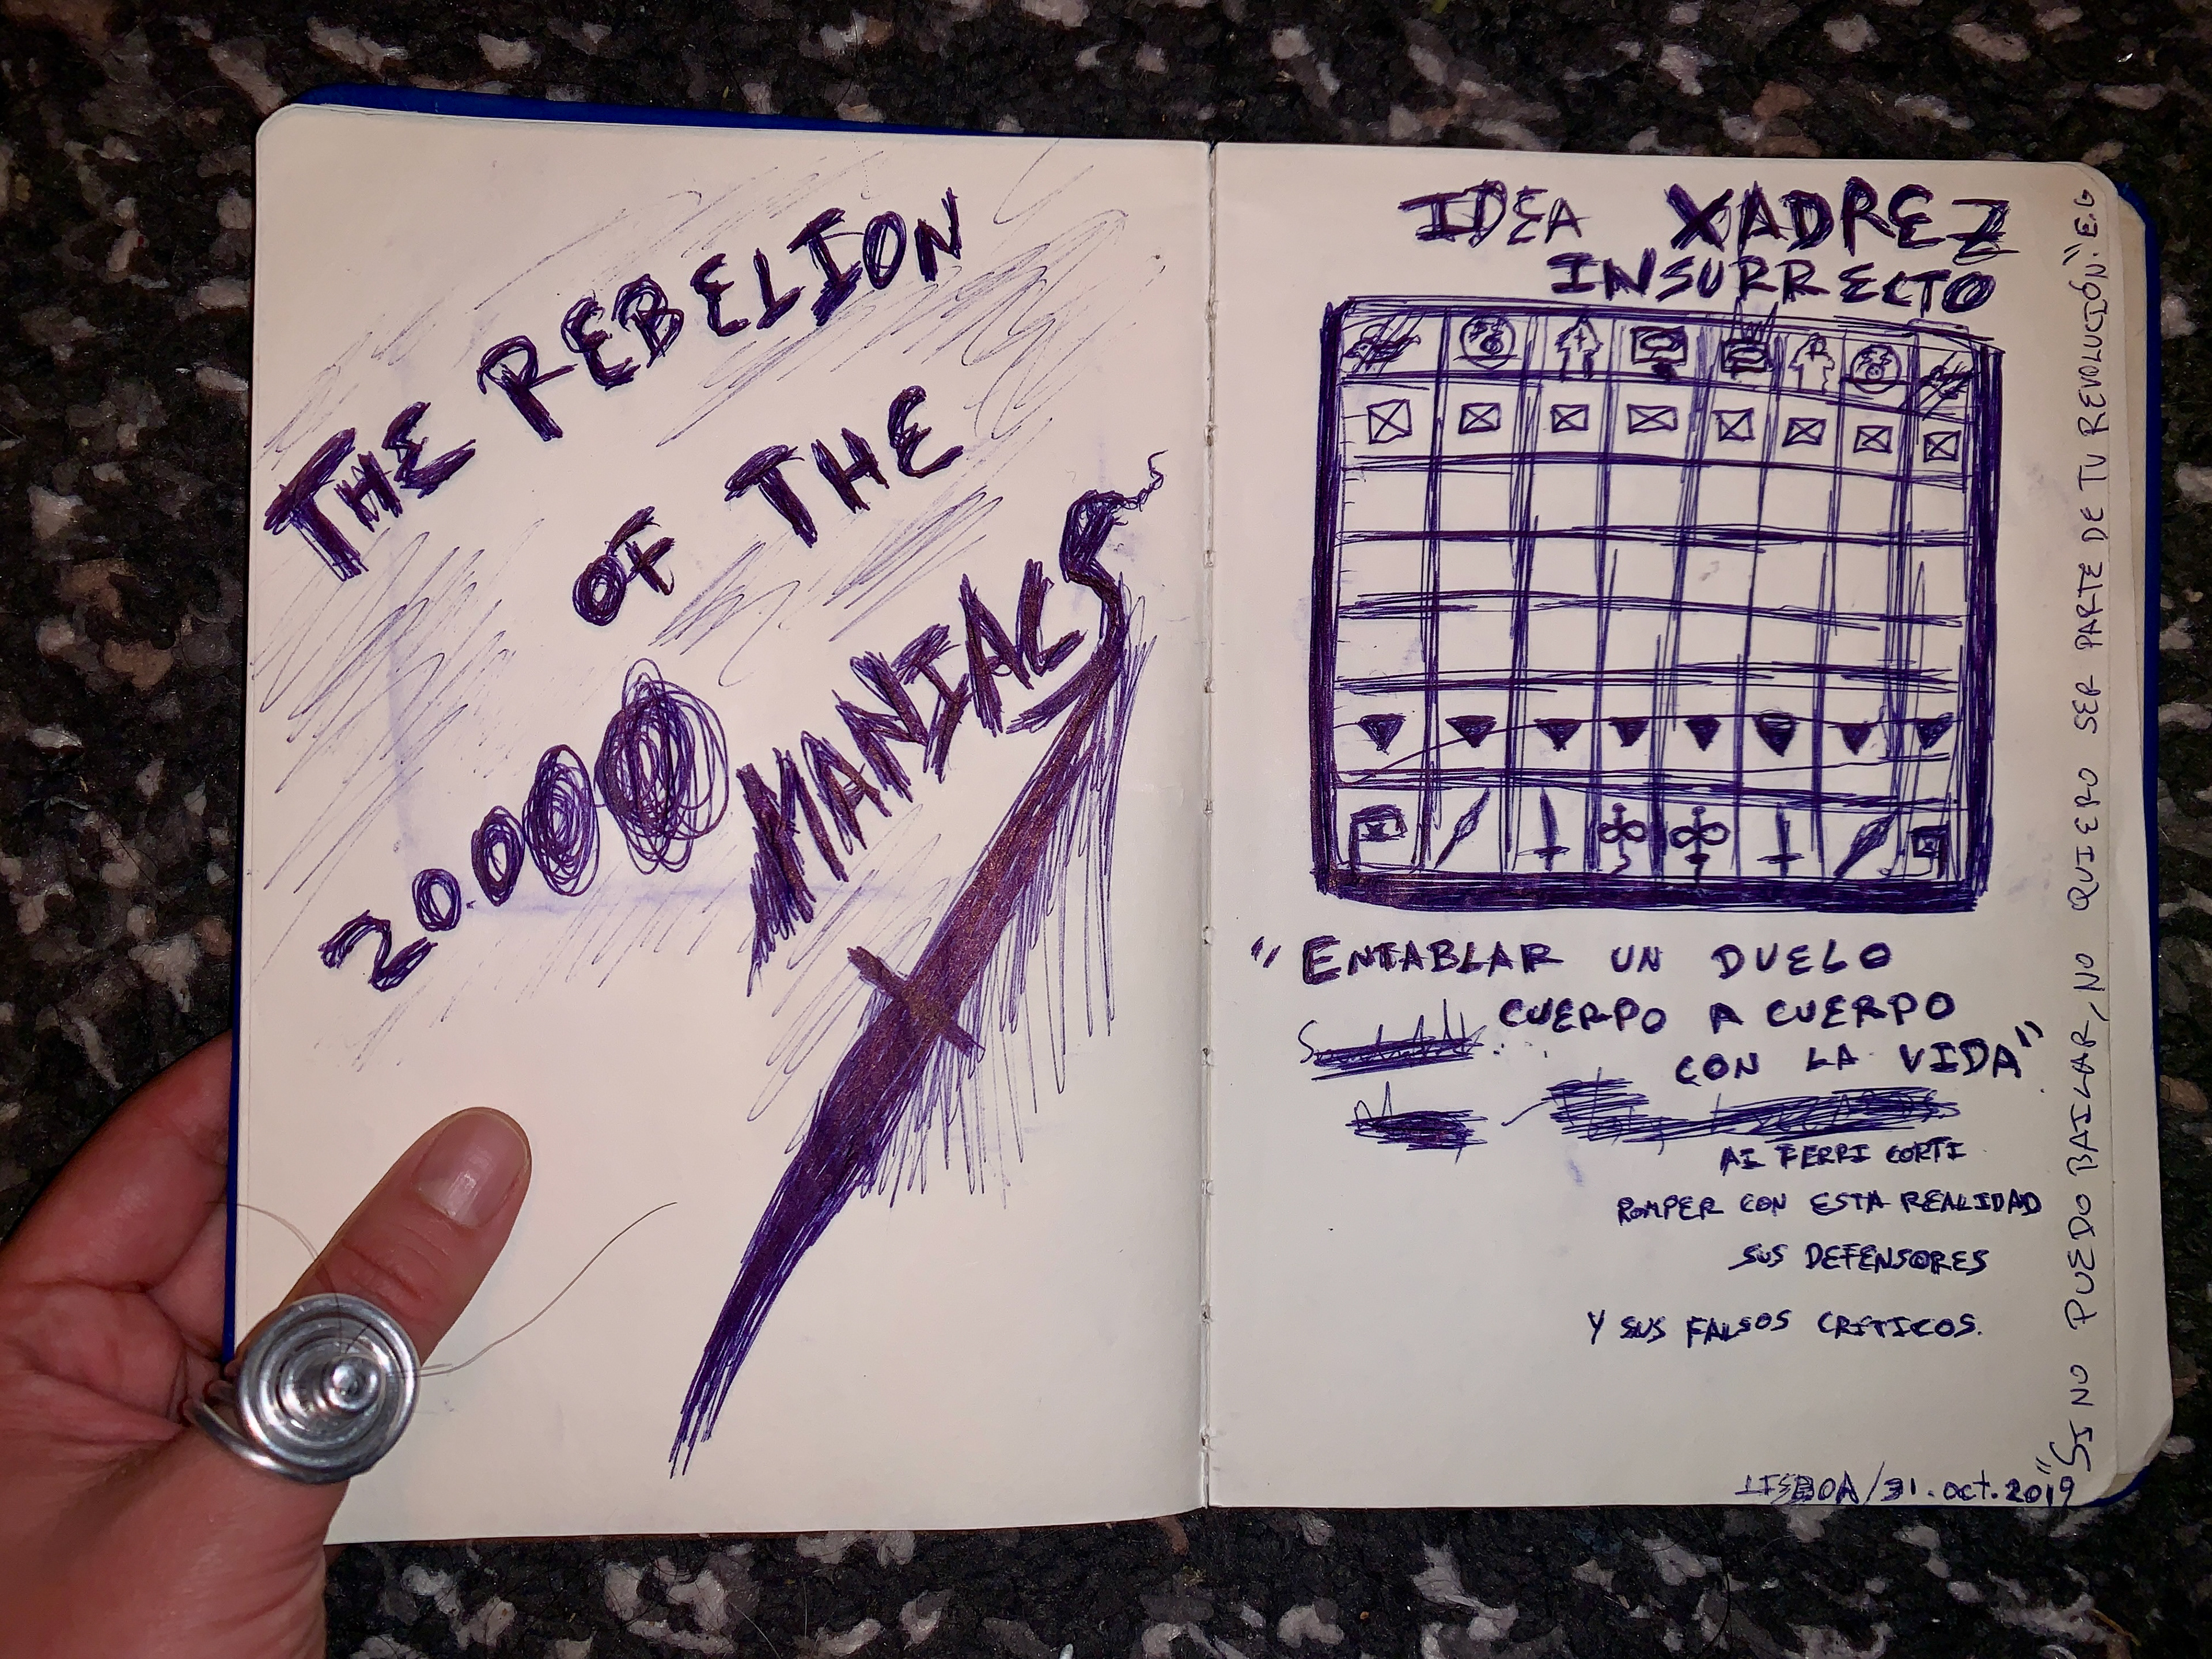 THE REBELION
OF THE
20.000 MANIACS
IDEA XADREZ
INSURRECTO
"ENTABLAR UN DUELO
CUERPO A CUERPO
CON LA VIDA"
AI FERRI CORTI
ROMPER CON ESTA REALIDAD
SUS DEFENSORES
Y SUS FALSOS CRITICOS.
LISBOA/31.oct.2019
"SI NO PUEDO BAILAR, NO QUIERO SER PARTE DE TU REVOLUCIÓN." E.G